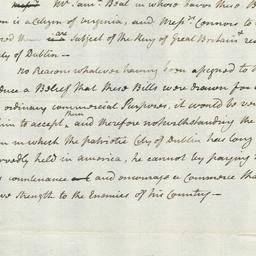 Mr. Saml. Beal in whose favor these B
on is a Citizen of Virginia, and Messrs. Connors to
red them are Subjects of the King of Great Britain & re
ity of Dublin —
No Reasons whatever having been assigned to
duce a Belief that these Bills were drawn for
ordinary commercial Purposes, it would be ver
him to accept them, and therefore notwithstanding the
on in which the patriotic City of Dublin has long
ervedly held in america, he cannot by paying
s countenance and encourage a Commerce tha
ve Strength to the Enemies of his Country —